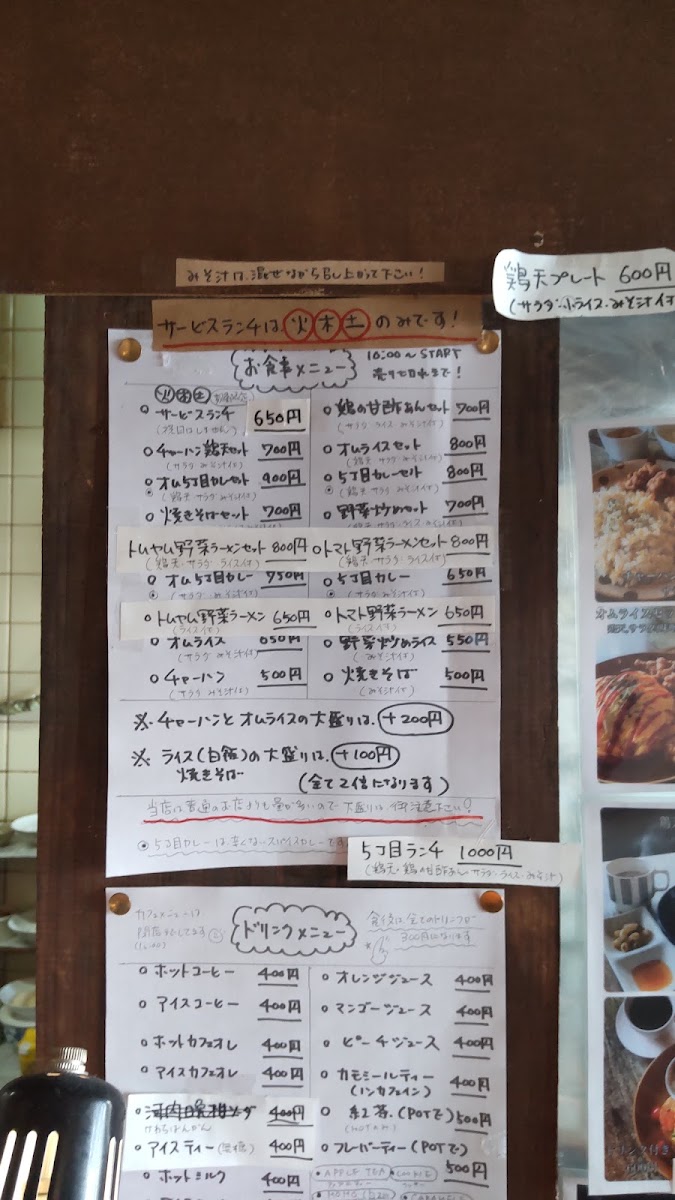 みそ汁は、混ぜながら召し上がって下さい!
鶏天プレート 600円
(サラダ・小ライス・みそ汁付
サービスランチは火木土のみです!
お食事メニュー
10:00〜START
売り切れまで!
火木土
サービスランチ 650円
(祝日はしません)
チャーハン鶏天セット 700円
(サラダ みそ汁付)
オム5丁目カレセット 900円
(鶏天 サラダ みそ汁付)
焼きそばセット 700円
トムヤム野菜ラーメンセット 800円
(鶏天・サラダ・ライス付)
オム5丁目カレー 750円
(サラダ みそ汁付)
トムヤム野菜ラーメン 650円
(ライス付)
オムライス 650円
(サラダ みそ汁付)
チャーハン 500円
(サラダ みそ汁付)
鶏の甘酢あんセット 700円
(サラダ ライス みそ汁付)
オムライスセット 800円
(鶏天 サラダ みそ汁付)
5丁目カレーセット 800円
(鶏天 サラダ みそ汁付)
野菜炒めセット 700円
トマト野菜ラーメンセット 800円
(鶏天・サラダ・ライス付)
5丁目カレー 650円
(サラダ みそ汁付)
トマト野菜ラーメン 650円
(ライス付)
野菜炒めライス 550円
(みそ汁付)
焼きそば 500円
(みそ汁付)
※ チャーハンとオムライスの大盛りは、+200円
※ ライス(白飯)の大盛りは、+100円
焼きそば
(全て2倍になります)
当店は普通のお店よりも量が多いので大盛りは、御注意下さい!
5丁目カレーは、辛くないスパイスカレーです
5丁目ランチ 1000円
(鶏天・鶏の甘酢あん サラダ・ライス・みそ汁)
ドリンクメニュー
カフェメニューは
食後は、全てのドリンクが
300円になります
ホットコーヒー 400円
アイスコーヒー 400円
ホットカフェオレ 400円
アイスカフェオレ 400円
河内晩柑ソーダ 400円
かわちばんかん
アイスティー 400円
ホットミルク 400円
オレンジジュース 400円
マンゴージュース 400円
ピーチジュース 400円
カモミールティー 400円
(ノンカフェイン)
紅茶(POTで) 500円
フレーバーティー(POTで) 500円
APPLE TEA
COOKIE
MOMO
CARAMEL
オムライスセ
ドリンク付き
600円